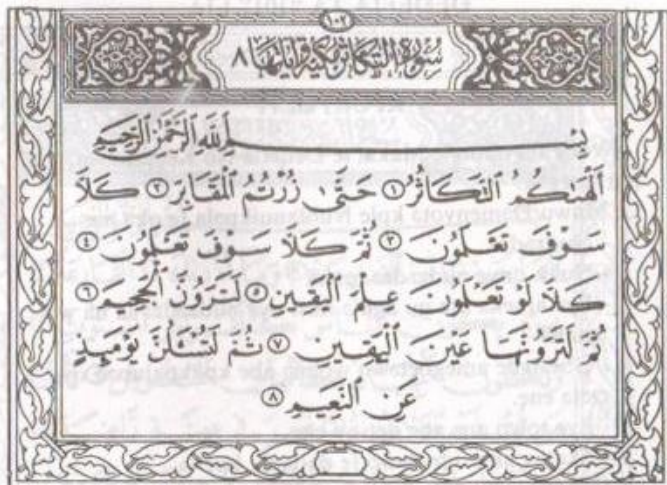 ١٠٢
سُورَةُ التَّكَاثُرِ مَكِّيَّة وَآيَاتُهَا ٨
بِسْمِ اللَّهِ الرَّحْمَٰنِ الرَّحِيمِ
أَلْهَىٰكُمُ التَّكَاثُرُ ١ حَتَّىٰ زُرْتُمُ الْمَقَابِرَ ٢ كَلَّا
سَوْفَ تَعْلَمُونَ ٣ ثُمَّ كَلَّا سَوْفَ تَعْلَمُونَ ٤
كَلَّا لَوْ تَعْلَمُونَ عِلْمَ الْيَقِينِ ٥ لَتَرَوُنَّ الْجَحِيمَ ٦
ثُمَّ لَتَرَوُنَّهَا عَيْنَ الْيَقِينِ ٧ ثُمَّ لَتُسْـَٔلُنَّ يَوْمَئِذٍ
عَنِ النَّعِيمِ ٨